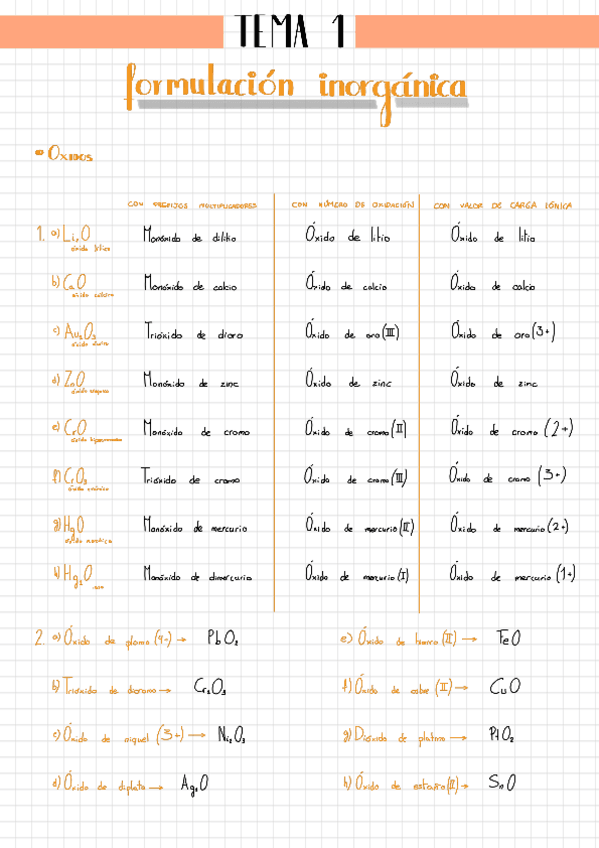 TEMA 1
formulación inorgánica
Óxidos
CON PREFIJOS MULTIPLICADORES CON NÚMERO DE OXIDACIÓN CON VALOR DE CARGA IÓNICA
1. a) Li₂O Monóxido de dilitio Óxido de litio Óxido de litio
b) CaO Monóxido de calcio Óxido de calcio Óxido de calcio
c) Au₂O₃ Trióxido de dioro Óxido de oro (III) Óxido de oro (3+)
d) ZnO Monóxido de zinc Óxido de zinc Óxido de zinc
e) CrO Monóxido de cromo Óxido de cromo (II) Óxido de cromo (2+)
f) CrO₃ Trióxido de cromo Óxido de cromo (III) Óxido de cromo (3+)
g) HgO Monóxido de mercurio Óxido de mercurio (II) Óxido de mercurio (2+)
h) Hg₂O Monóxido de dimercurio Óxido de mercurio (I) Óxido de mercurio (1+)
2. a) Óxido de plomo (4+) → PbO₂ e) Óxido de hierro (II) → FeO
b) Trióxido de dicromo → Cr₂O₃ f) Óxido de cobre (II) → CuO
c) Óxido de níquel (3+) → Ni₂O₃ g) Dióxido de platino → PtO₂
d) Óxido de diplata → Ag₂O h) Óxido de estaño (II) → SnO